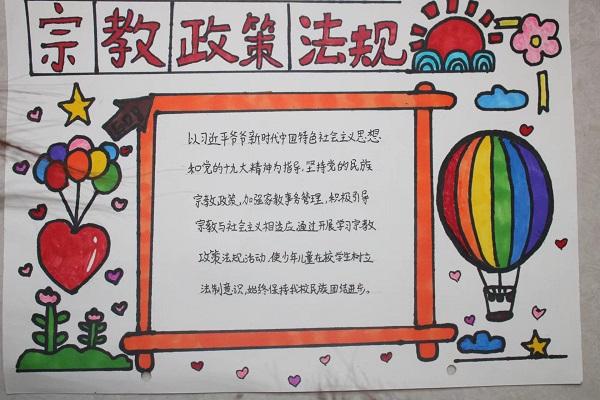 宗教政策法规
以习近平爷爷新时代中国特色社会主义思想
和党的十九大精神为指导,坚持党的民族
宗教政策,加强宗教事务管理,积极引导
宗教与社会主义相适应,通过开展学习宗教
政策法规活动,使少年儿童在校学生树立
法制意识,始终保持我校民族团结进步。